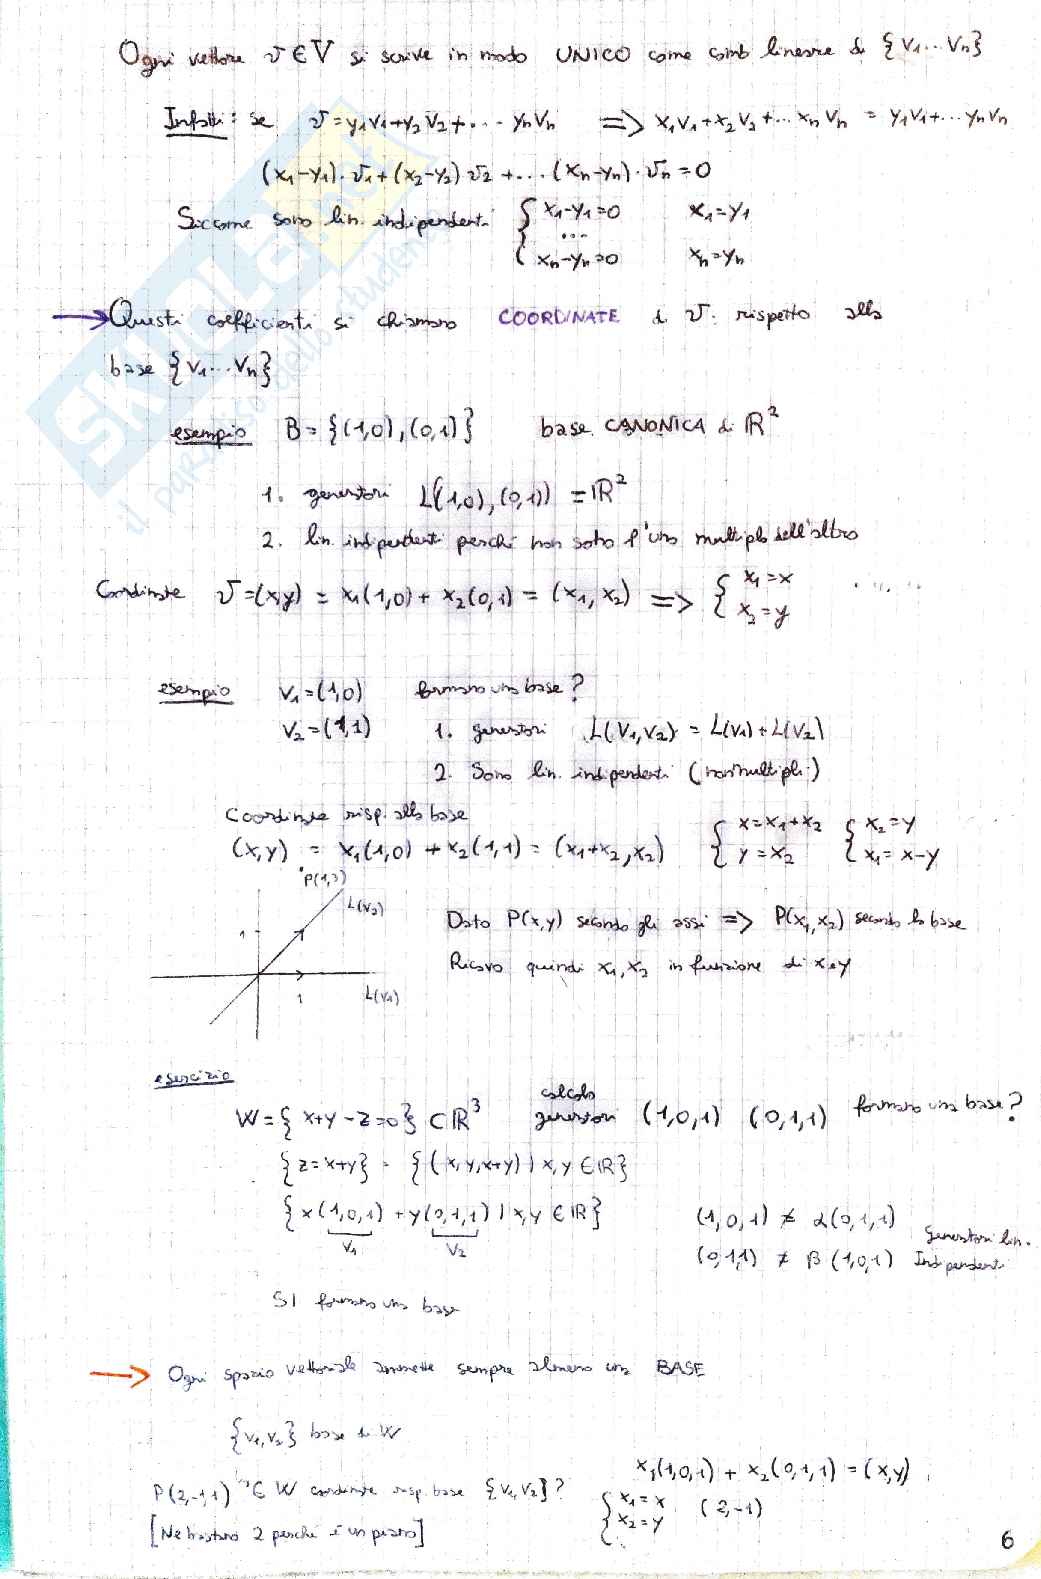 Ogni vettore v∈V si scrive in modo UNICO come comb lineare di {v1...vn}
Infatti: se v=y1v1+y2v2+... ynvn => x1v1+x2v2+...xnvn = y1v1+...ynvn
(x1-y1)·v1+(x2-y2)·v2+...(xn-yn)·vn=0
Siccome sono lin. indipendenti { x1-y1=0 x1=y1
...
xn-yn=0 xn=yn
→ Questi coefficienti si chiamano COORDINATE di v rispetto alla
base {v1...vn}
esempio B={(1,0),(0,1)} base CANONICA di ℝ²
1. generatori L((1,0),(0,1)) =ℝ²
2. lin. indipendenti perché non sono l'uno multiplo dell'altro
Coordinate v=(x,y) = x1(1,0)+x2(0,1)=(x1,x2) => { x1=x
x2=y
esempio v1=(1,0) formano una base?
v2=(1,1) 1. generatori L(v1,v2) = L(v1)+L(v2)
2. Sono lin. indipendenti (non multipli)
Coordinate risp. alla base
(x,y) = x1(1,0)+x2(1,1)=(x1+x2,x2) { x=x1+x2 { x2=y
y=x2 x1=x-y
P(1,3)
L(v2)
1
L(v1)
1
Dato P(x,y) secondo gli assi => P(x1,x2) secondo la base
Ricavo quindi x1,x2 in funzione di x e y
esercizio
W={x+y-z=0}⊂ℝ³ calcolo generatori (1,0,1) (0,1,1) formano una base?
{z=x+y} = {(x,y,x+y) | x,y∈ℝ}
{x(1,0,1)+y(0,1,1) | x,y∈ℝ}
v1 v2
(1,0,1) ≠ α(0,1,1)
(0,1,1) ≠ β(1,0,1) generatori lin. Indipendenti
SI formano una base
→ Ogni spazio vettoriale ammette sempre almeno una BASE
{v1,v2} base di W
P(2,-1,1) ∈ W coordinate risp. base {v1,v2}? x1(1,0,1)+x2(0,1,1)=(x,y)
{ x1=x (2,-1)
x2=y
[Ne bastano 2 perché è un piano]
6
SKUOLA.net
il paradiso dello studente